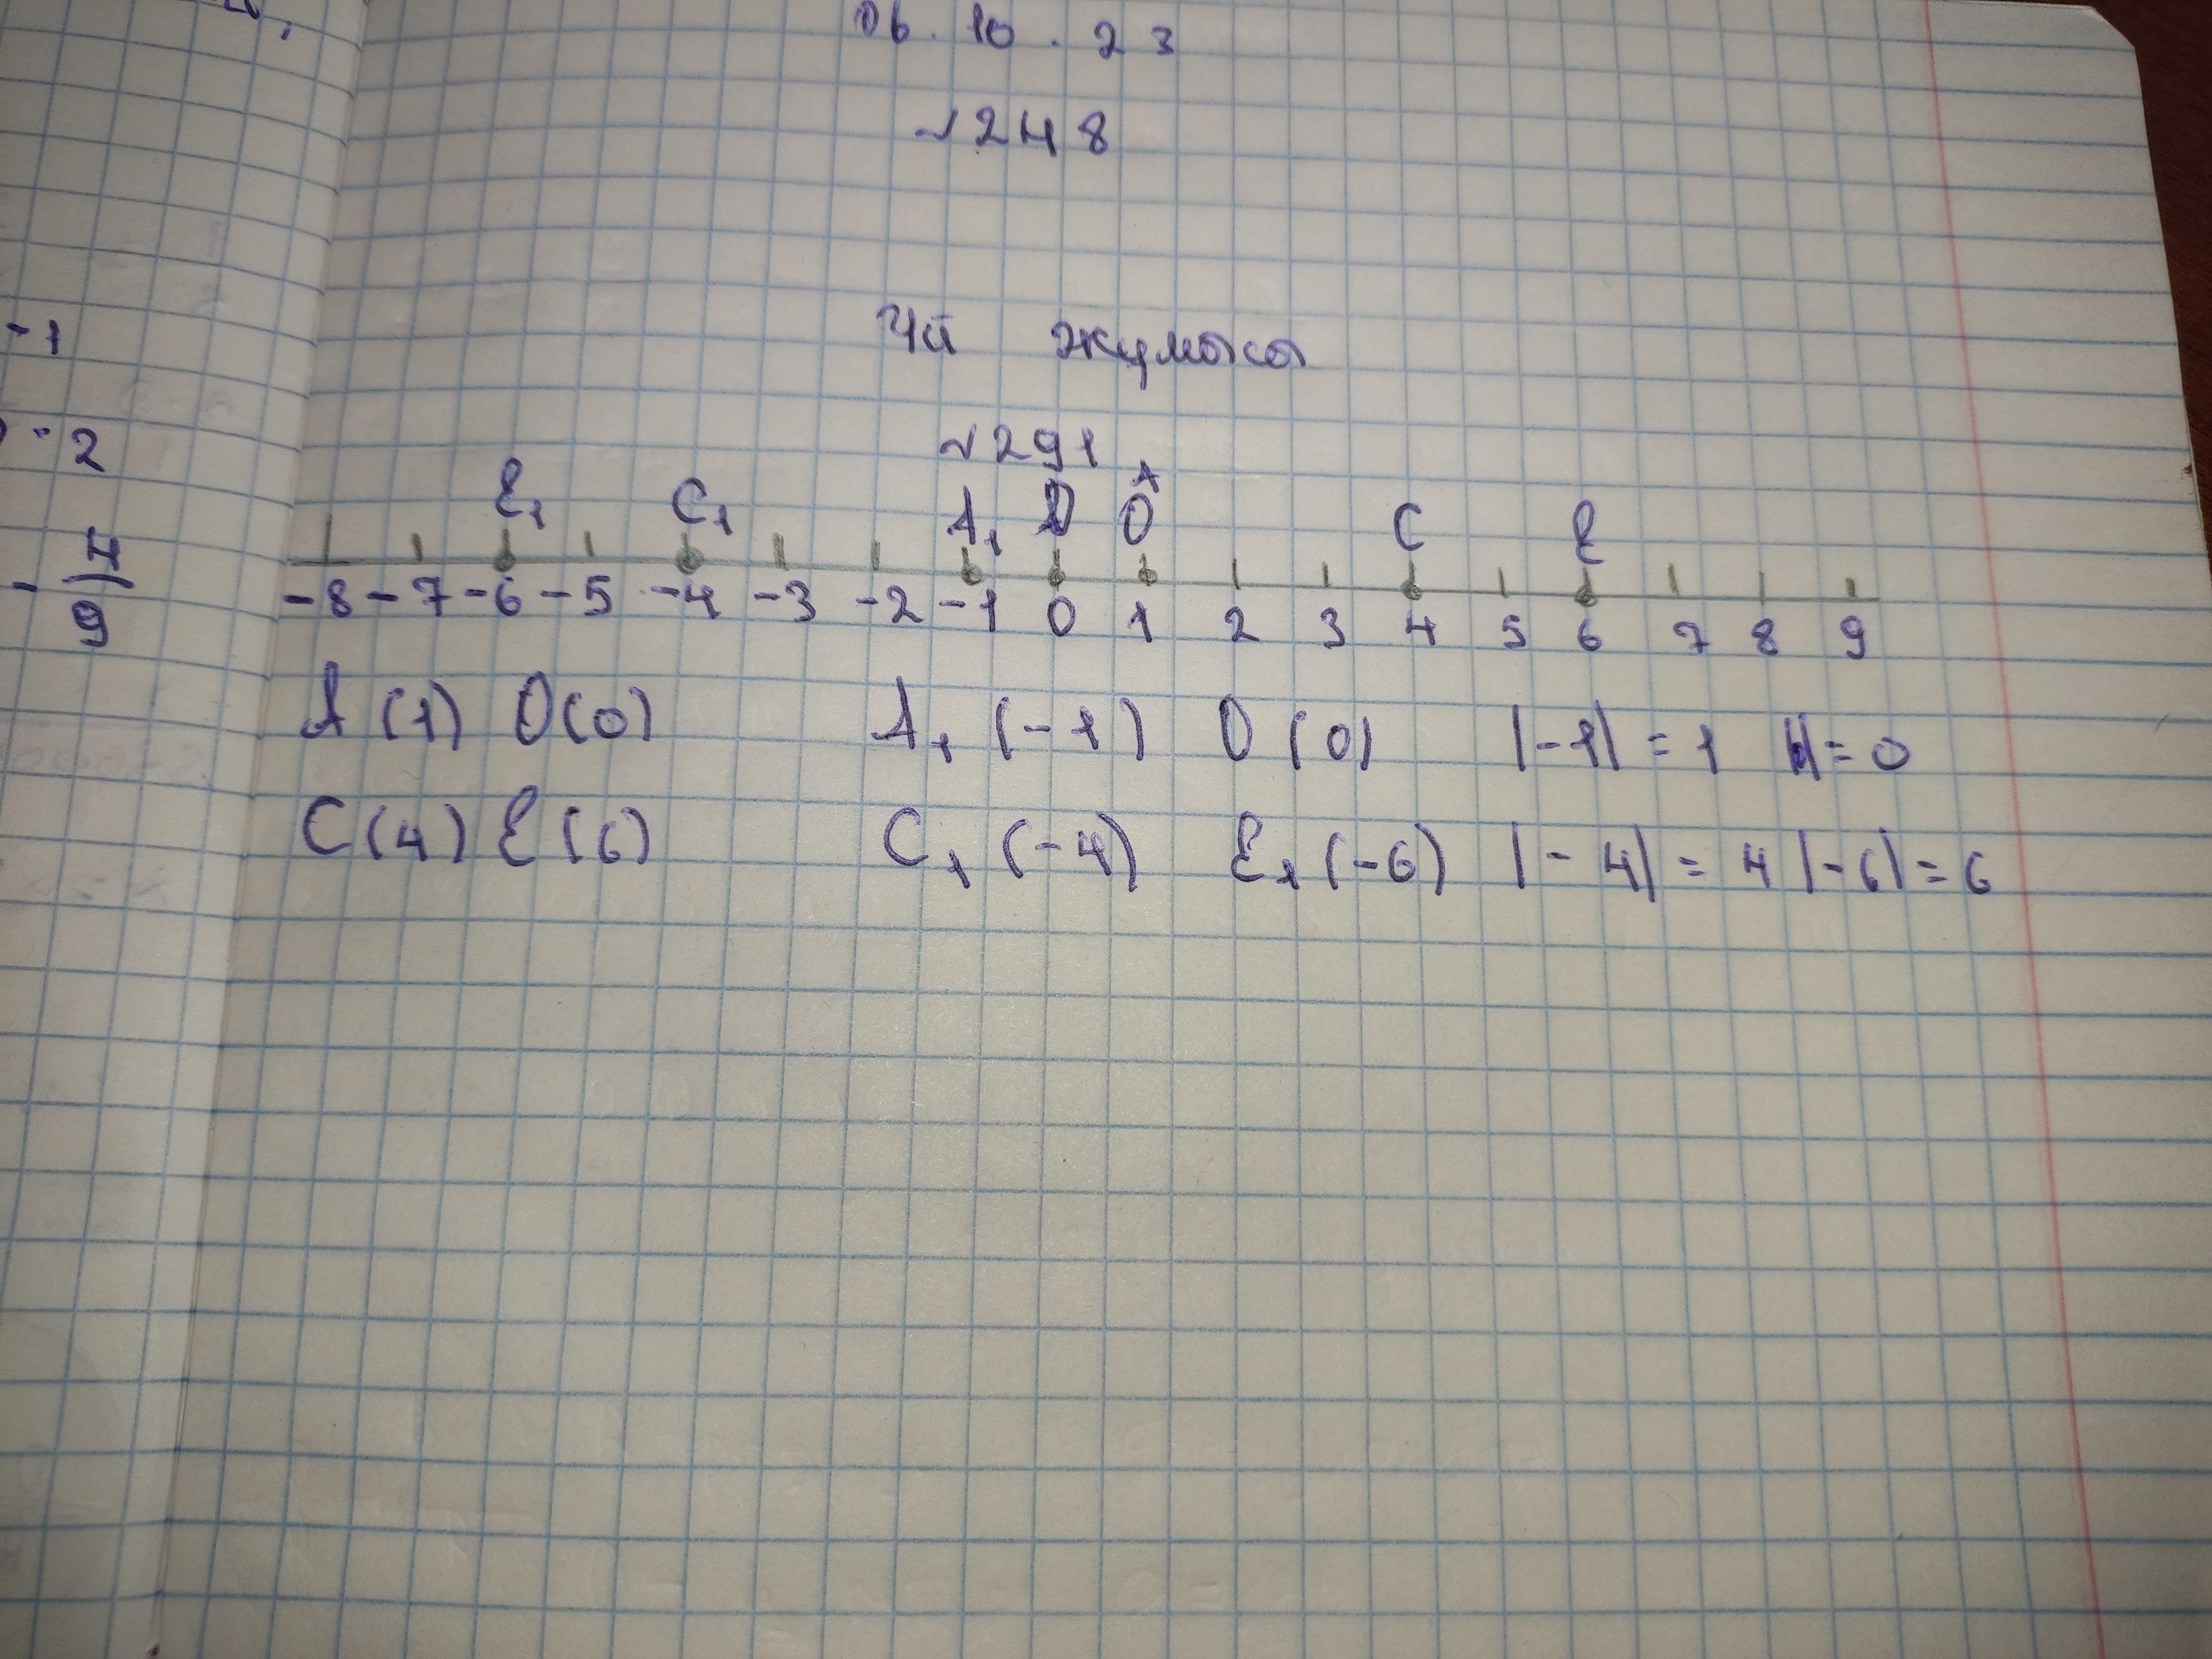 06.10.23
√248
Үй жұмысы
√291
E₁ C₁ A₁ O A C E
-8 -7 -6 -5 -4 -3 -2 -1 0 1 2 3 4 5 6 7 8 9
A (1) O(0) A₁ (-1) O (0) |-1| = 1 = 0
C(4) E(6) C₁ (-4) E₁ (-6) |-4| = 4 |-6| = 6
-1
-2
- 4/9